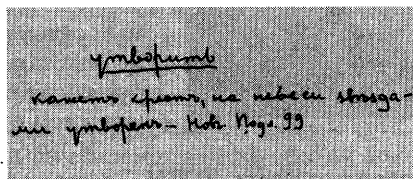 утворить
кажетъ крестъ, на небеси звѣзда-
ми утворенъ – Новг. Подв. 99